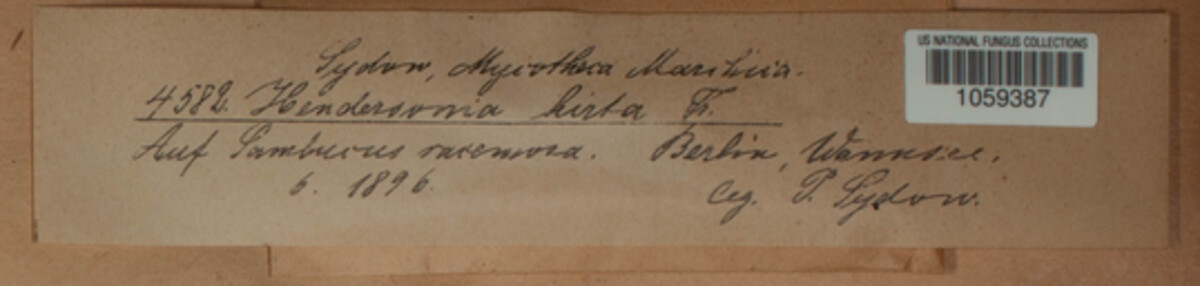 Sydow, Mycotheca Marchica.
4582. Hendersonia hirta Fr.
Auf Sambucus racemosa. Berlin, Wannsee.
6. 1896. leg. P. Sydow.
US NATIONAL FUNGUS COLLECTIONS
1059387